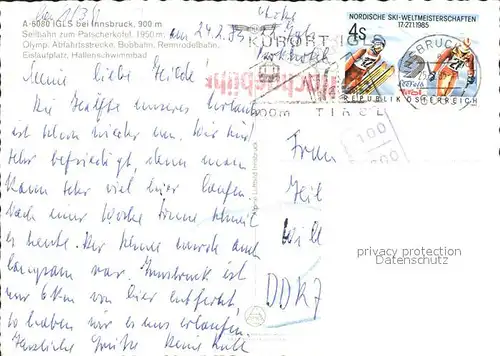 A-6080 IGLS bei Innsbruck, 900 m
Seilbahn zum Patscherkofel, 1950 m
Olymp. Abfahrtsstrecke, Bobbahn, Rennrodelbahn,
Eislaufplatz, Hallenschwimmbad
24.2.85
KURORT IGLS
900m TIROL
NORDISCHE SKI-WELTMEISTERSCHAFTEN
17.-27.1.1985
4s
Seefeld
Tirol
REPUBLIK ÖSTERREICH
Nachgebühr
100
Meine liebe
Die Hälfte unseres Urlaubs
ist schon wieder um. Wir sind
sehr befriedigt, denn man
kann sehr viel hier laufen.
Nach einer Woche Sonne schneit
es heute. Der Schnee wurde auch
langsam rar. Innsbruck ist
nur 6 km von hier entfernt,
so haben wir es uns erlaufen.
Herzliche Grüße Deine
Frau
DDR 7
privacy protection
DARKNET.COM